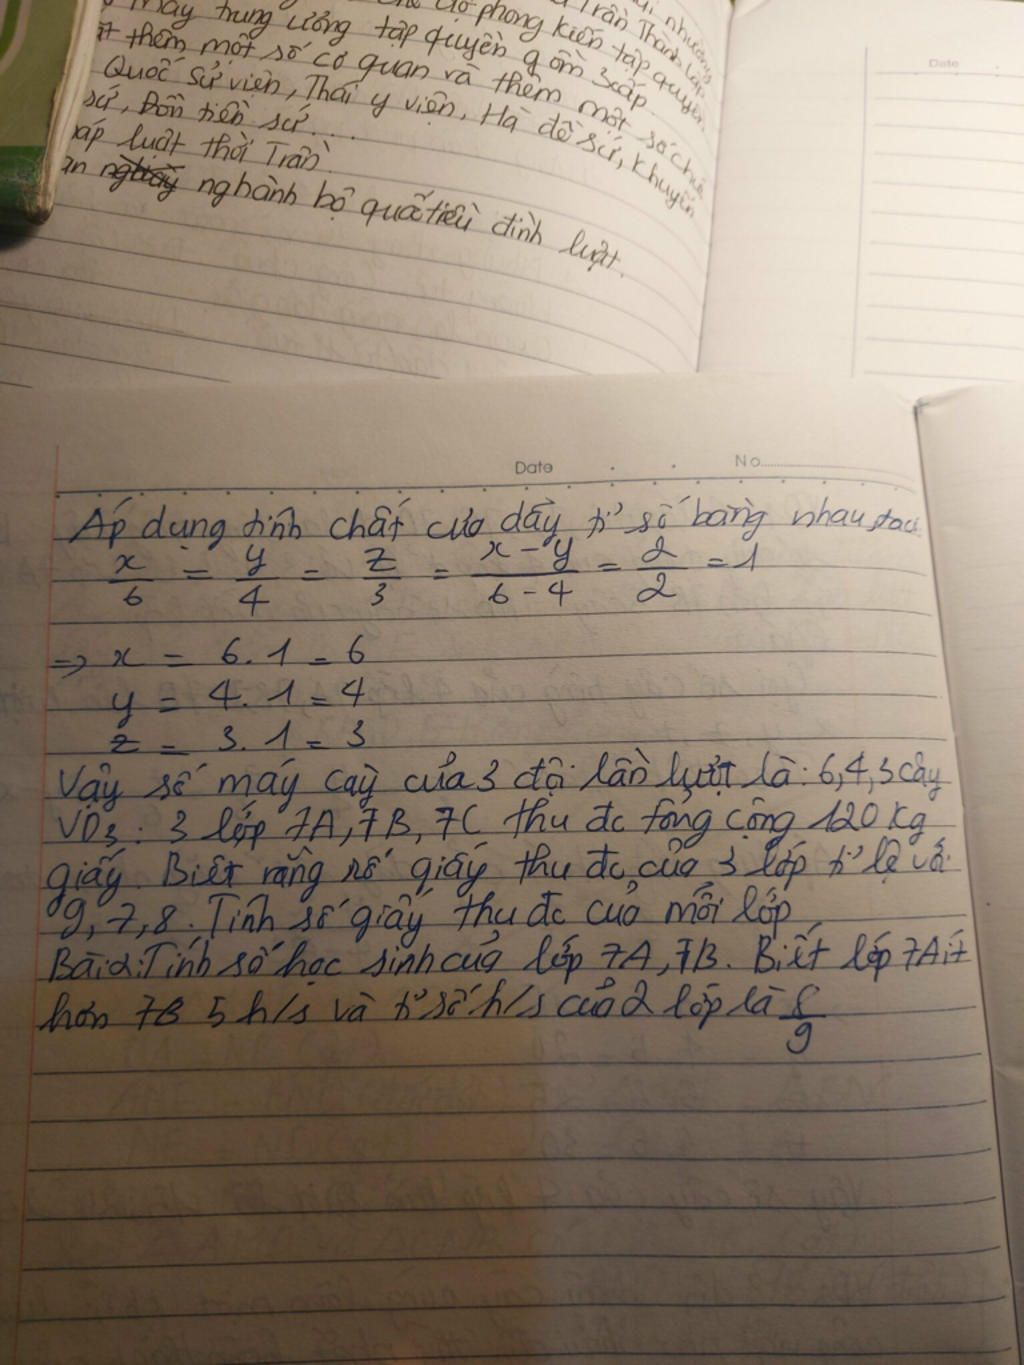 phong kiến tập quyền
máy trung ương tập quyền gồm 3 cấp.
thêm một số cơ quan và thêm một số chức
Quốc sử viện, Thái y viện, Hà đê sứ, Khuyến
sứ, Đồn điền sứ...
luật thời Trần.
nghành bộ quấ tiêù đình luật.
Date
Date No
Áp dụng tính chất cuả dãy tỉ số bằng nhau, ta có
x/6 = y/4 = z/3 = x-y/6-4 = 2/2 = 1
=> x = 6.1 = 6
y = 4.1 = 4
z = 3.1 = 3
Vậy số máy caỳ của 3 đội lần lượt là: 6,4,3 cây
VD3: 3 lớp 7A, 7B, 7C thu đc tổng cộng 120 kg
giấy. Biết rằng số giấy thu đc của 3 lớp tỉ lệ với
9, 7, 8. Tính số giấy thu đc cuả mỗi lớp
Bài 2: Tính số học sinh của lớp 7A, 7B. Biết lớp 7A ít
hơn 7B 5 h/s và tỉ số h/s cuả 2 lớp là 8/9